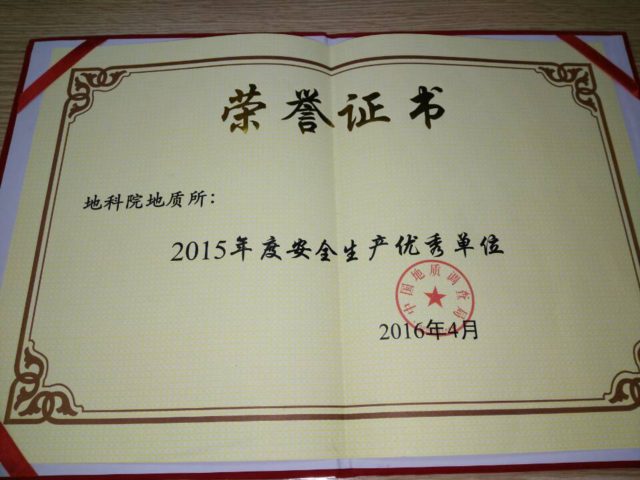 荣誉证书
地科院地质所：
2015年度安全生产优秀单位
中国地质调查局
2016年4月